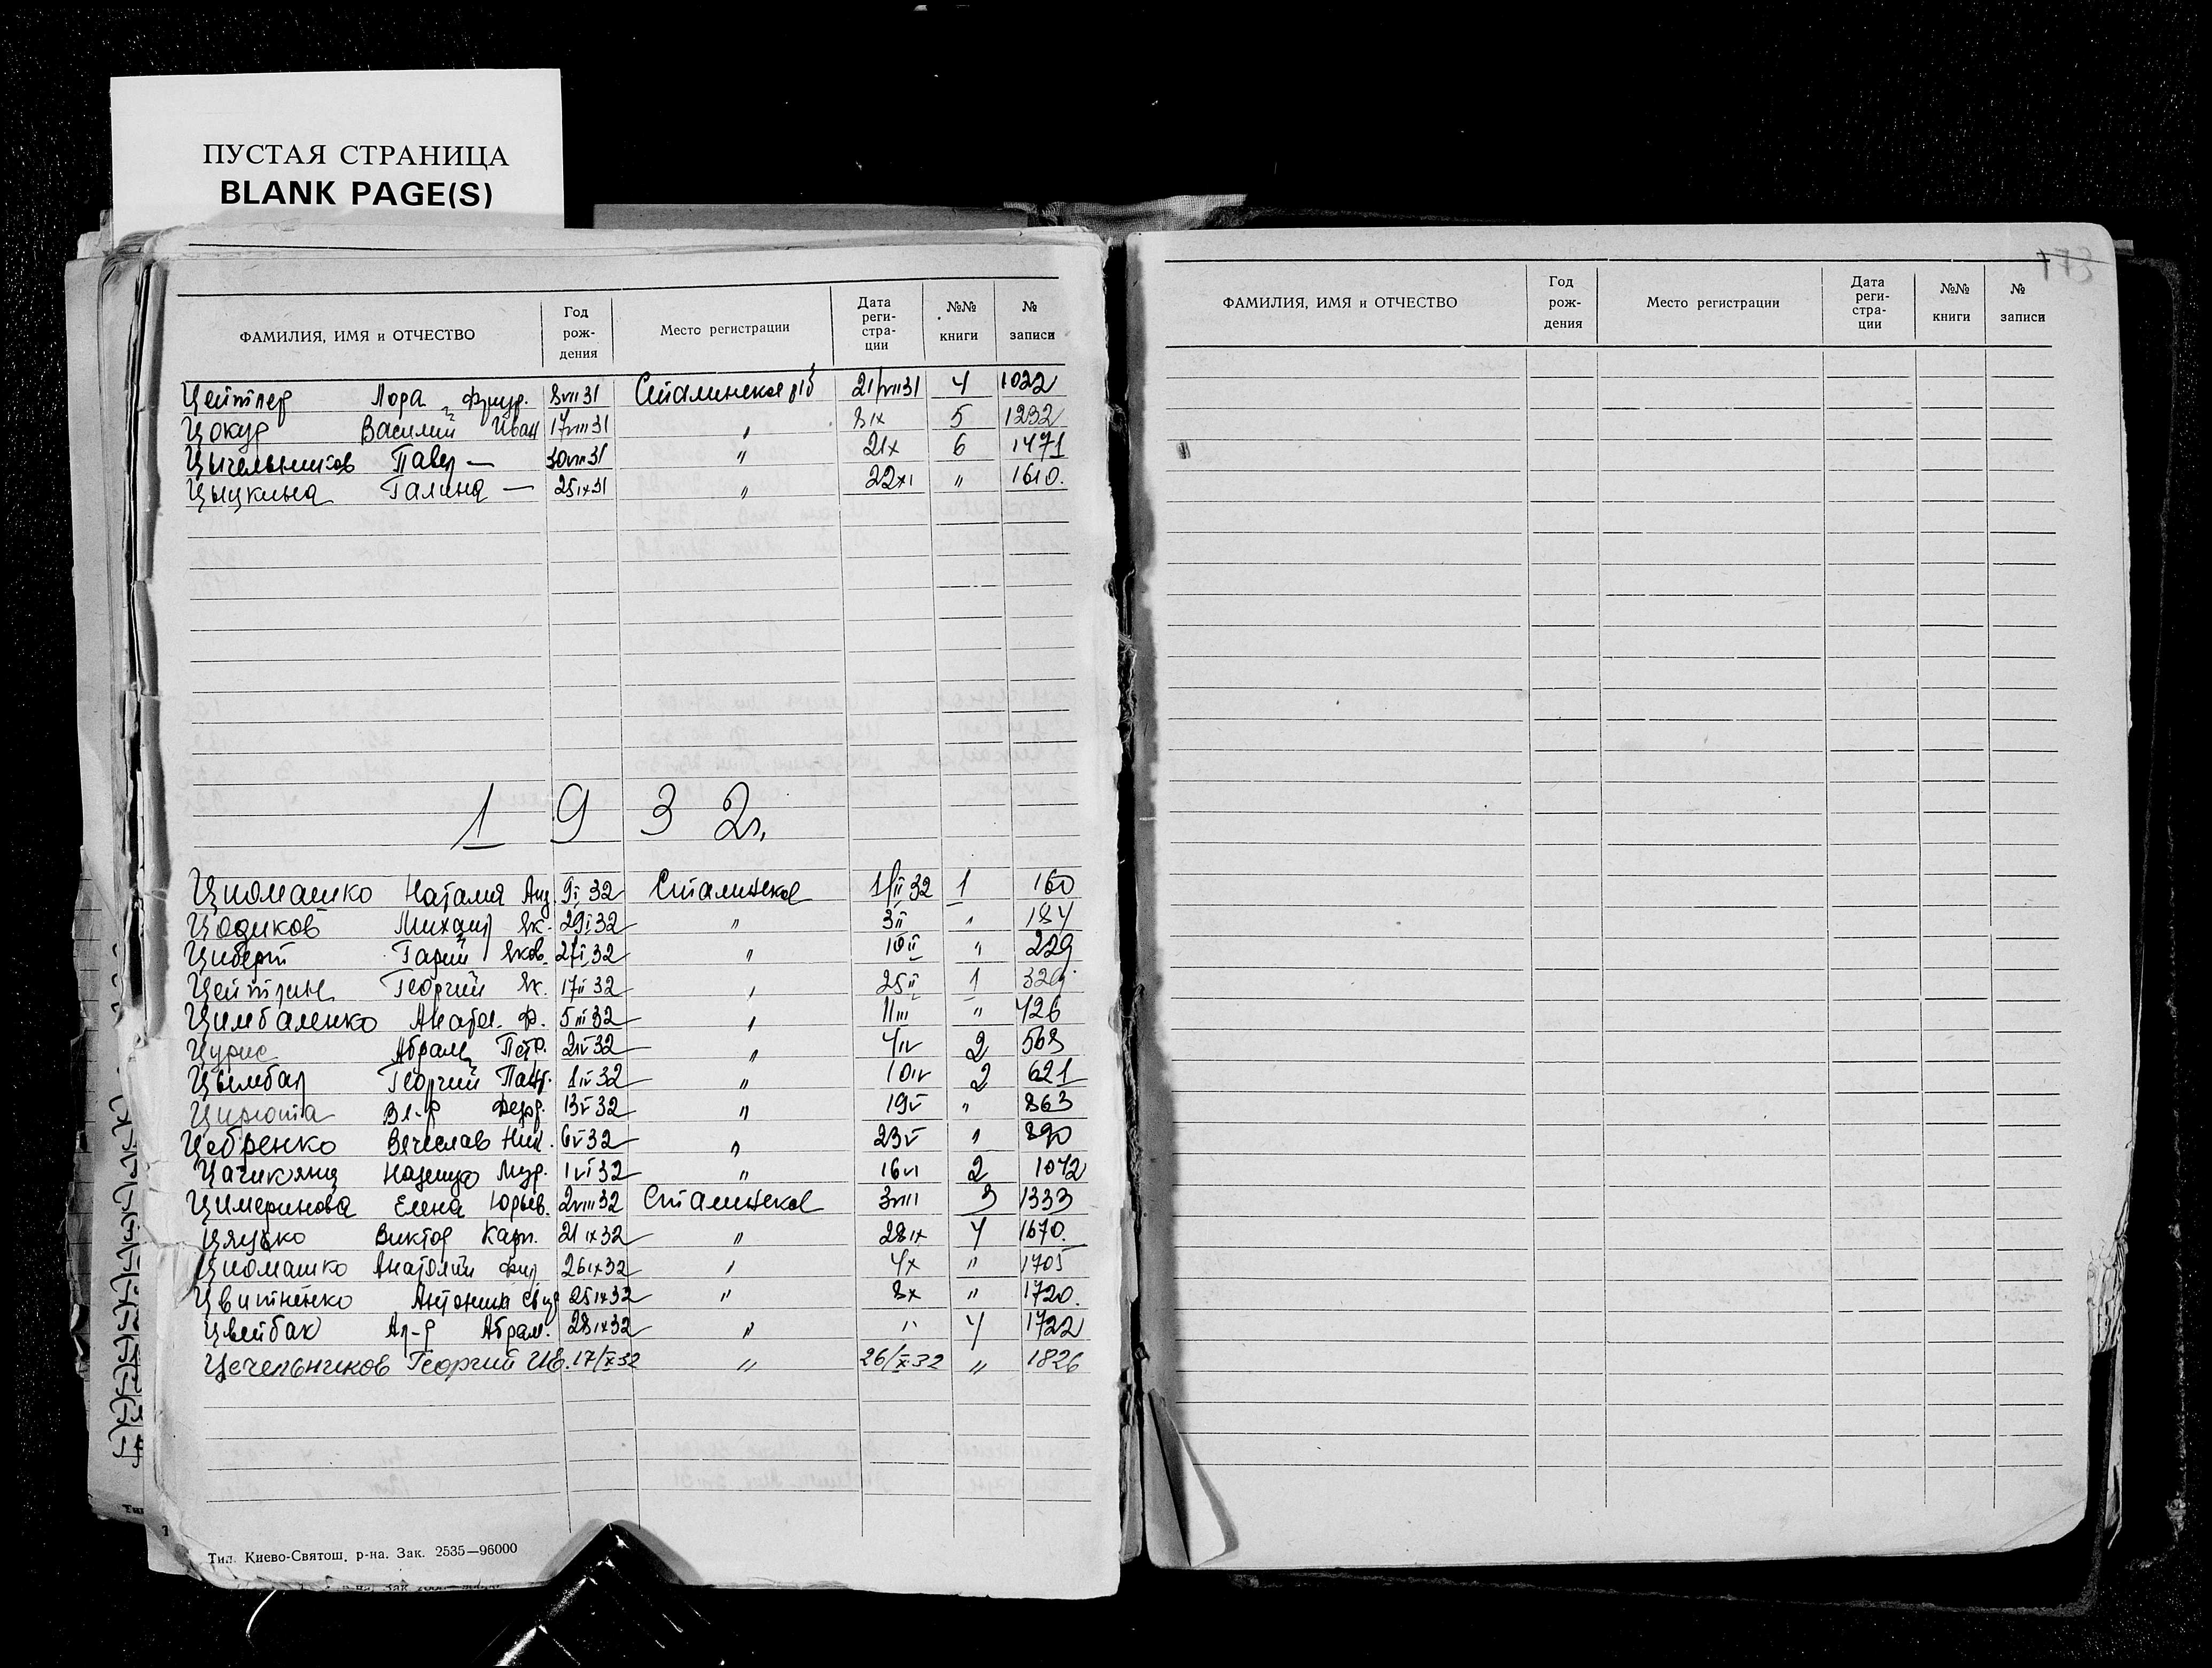 ПУСТАЯ СТРАНИЦА
BLANK PAGE(S)
ФАМИЛИЯ, ИМЯ и ОТЧЕСТВО Год рож-дения Место регистрации Дата реги-стра-ции №№ книги № записи
Цейтлер Лора Фрид. 8 VII 31 Сталинское 21/VII 31 4 1022
Цокур Василий Иван 17 VIII 31 " 8 IX 5 1232
Цычельников Павел — 30 VIII 31 " 21 X 6 1471
Цыцкина Галина — 25 IX 31 " 22 XI " 1610.
1932 г.
Циомашко Наталия Анд. 9 I 32 Сталинское 1/II 32 1 160
Цодиков Михаил Як. 29 I 32 " 3 II " 184
Циберт Гарий Яков. 27 I 32 " 10 II " 229
Цейтлин Георгий Як. 17 II 32 " 25 II 1 329
Цимбаленко Анатол. Ф. 5 III 32 " 11 III " 426
Цурис Абрам Петр. 2 IV 32 " 4 IV 2 568
Цымбал Георгий Пант. 1 IV 32 " 10 IV 2 621
Цирюта Вл-р Федр. 13 V 32 " 19 V " 863
Цебренко Вячеслав Ник. 6 V 32 " 23 V " 890
Цачикянц Надежда 1 VI 32 " 16 VI 2 1042
Цимеринова Елена Юрьев. 2 VIII 32 Сталинское 3 VIII 3 1333
Цяцько Виктор Карп. 21 IX 32 " 28 IX 4 1670.
Циомашко Анатолий Фил 26 IX 32 " 4 X " 1705
Цвитненко Антонина 25 IX 32 " 8 X " 1720.
Цвейбак Ал-р Абрам. 28 IX 32 " " 4 1722
Цечельников Георгий Ив. 17/X 32 " 26/X 32 " 1826
Тип. Киево-Святош. р-на. Зак. 2535—96000
ФАМИЛИЯ, ИМЯ и ОТЧЕСТВО Год рож-дения Место регистрации Дата реги-стра-ции №№ книги № записи